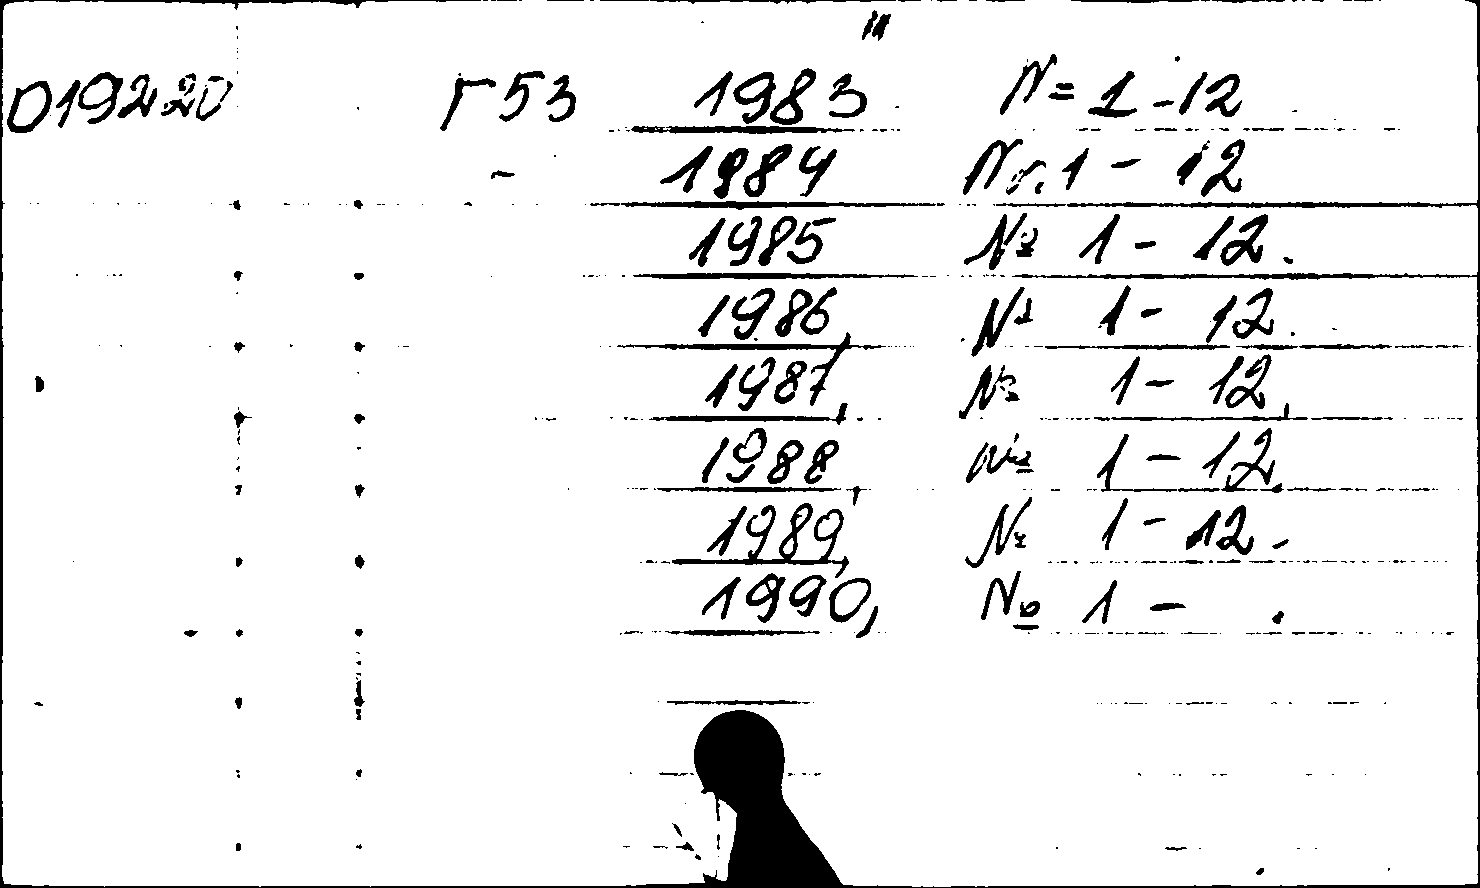 О19220 Г53 1983 N= 1-12
1984 No. 1 - 12
1985 № 1 - 12.
1986, № 1 - 12.
1987, № 1 - 12,
1988, № 1 - 12.
1989, № 1 - 12.
1990, № 1 - .